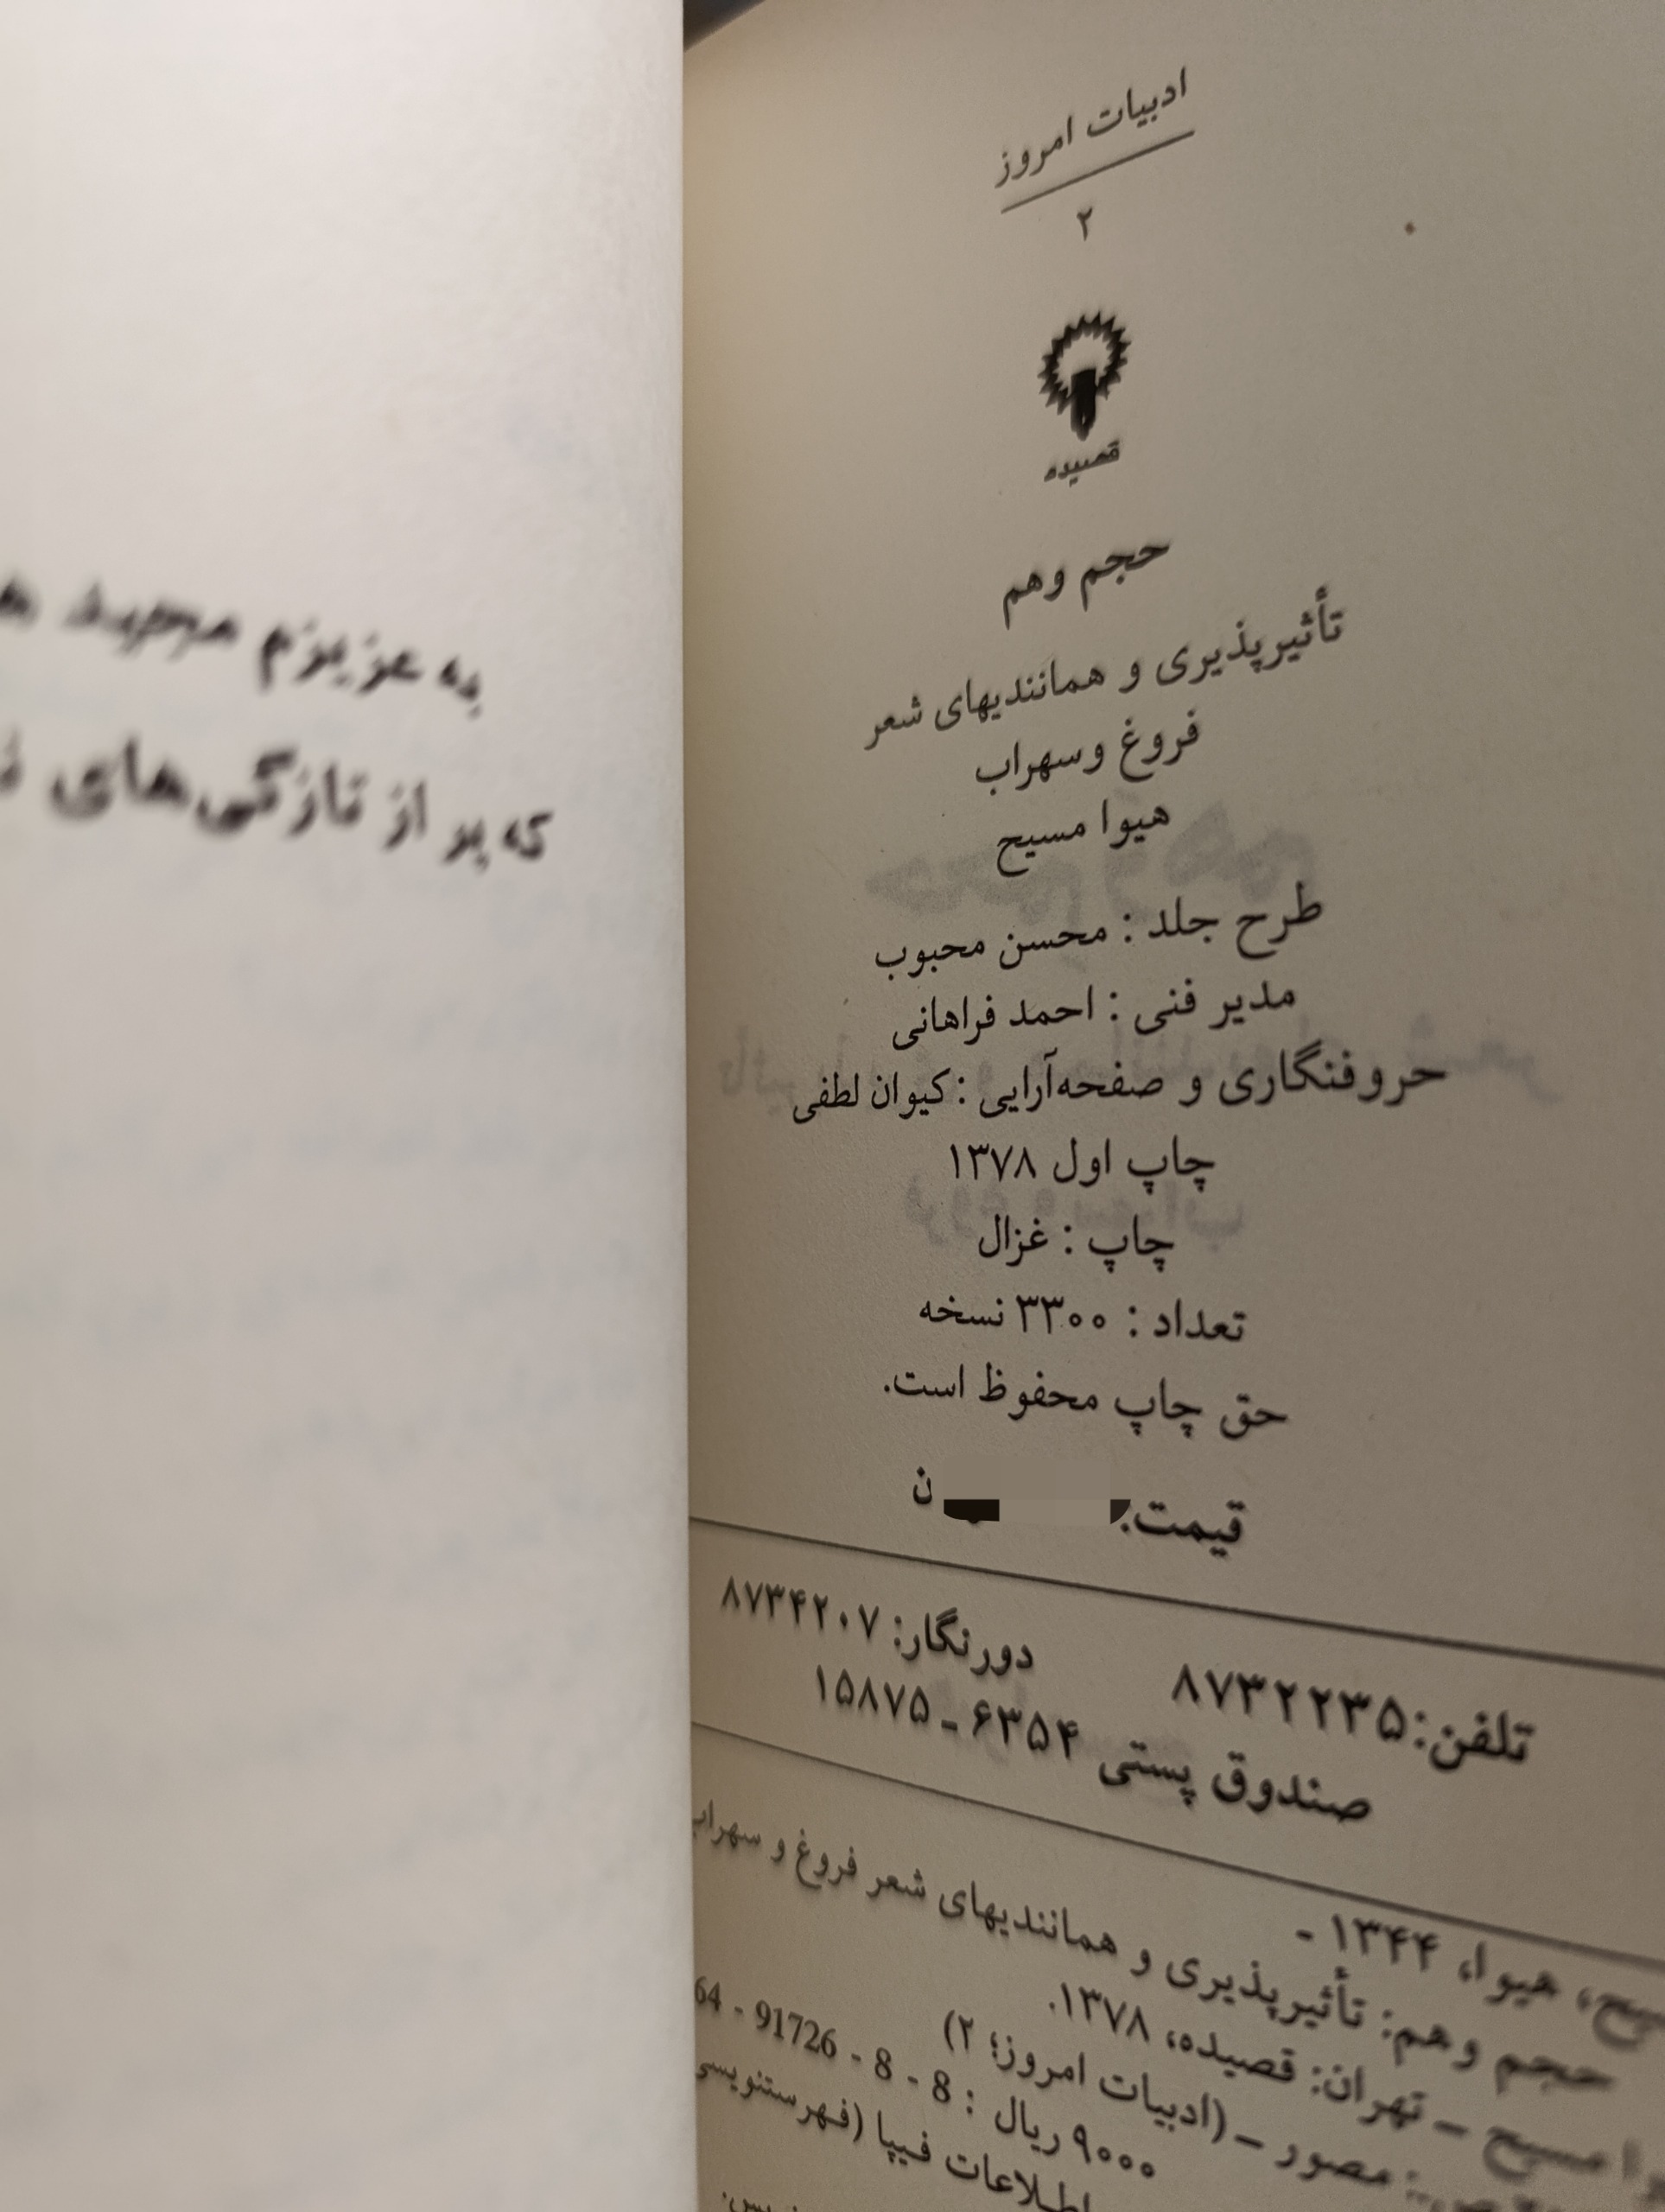 ادبیات امروز
۲
قصیده
حجم وهم
تأثیرپذیری و همانندیهای شعر
فروغ وسهراب
هیوا مسیح
طرح جلد : محسن محبوب
مدیر فنی : احمد فراهانی
حروفنگاری و صفحه‌آرایی : کیوان لطفی
چاپ اول ۱۳۷۸
چاپ : غزال
تعداد : ۳۳۰۰ نسخه
حق چاپ محفوظ است.
قیمت:
تلفن: ۸۷۳۲۲۳۵ دورنگار: ۸۷۳۴۲۰۷
صندوق پستی ۶۳۵۴ ـ ۱۵۸۷۵
هیوا، ۱۳۴۴ -
حجم وهم: تأثیرپذیری و همانندیهای شعر فروغ و سهراب
مسیح ـ تهران: قصیده، ۱۳۷۸.
مصور ـ (ادبیات امروز؛ ۲)
۹۰۰۰ ریال : 8 - 8 - 91726 - 64
اطلاعات فیپا (فهرستنویسی
به عزیزم مجید
که پر از تازگی‌های